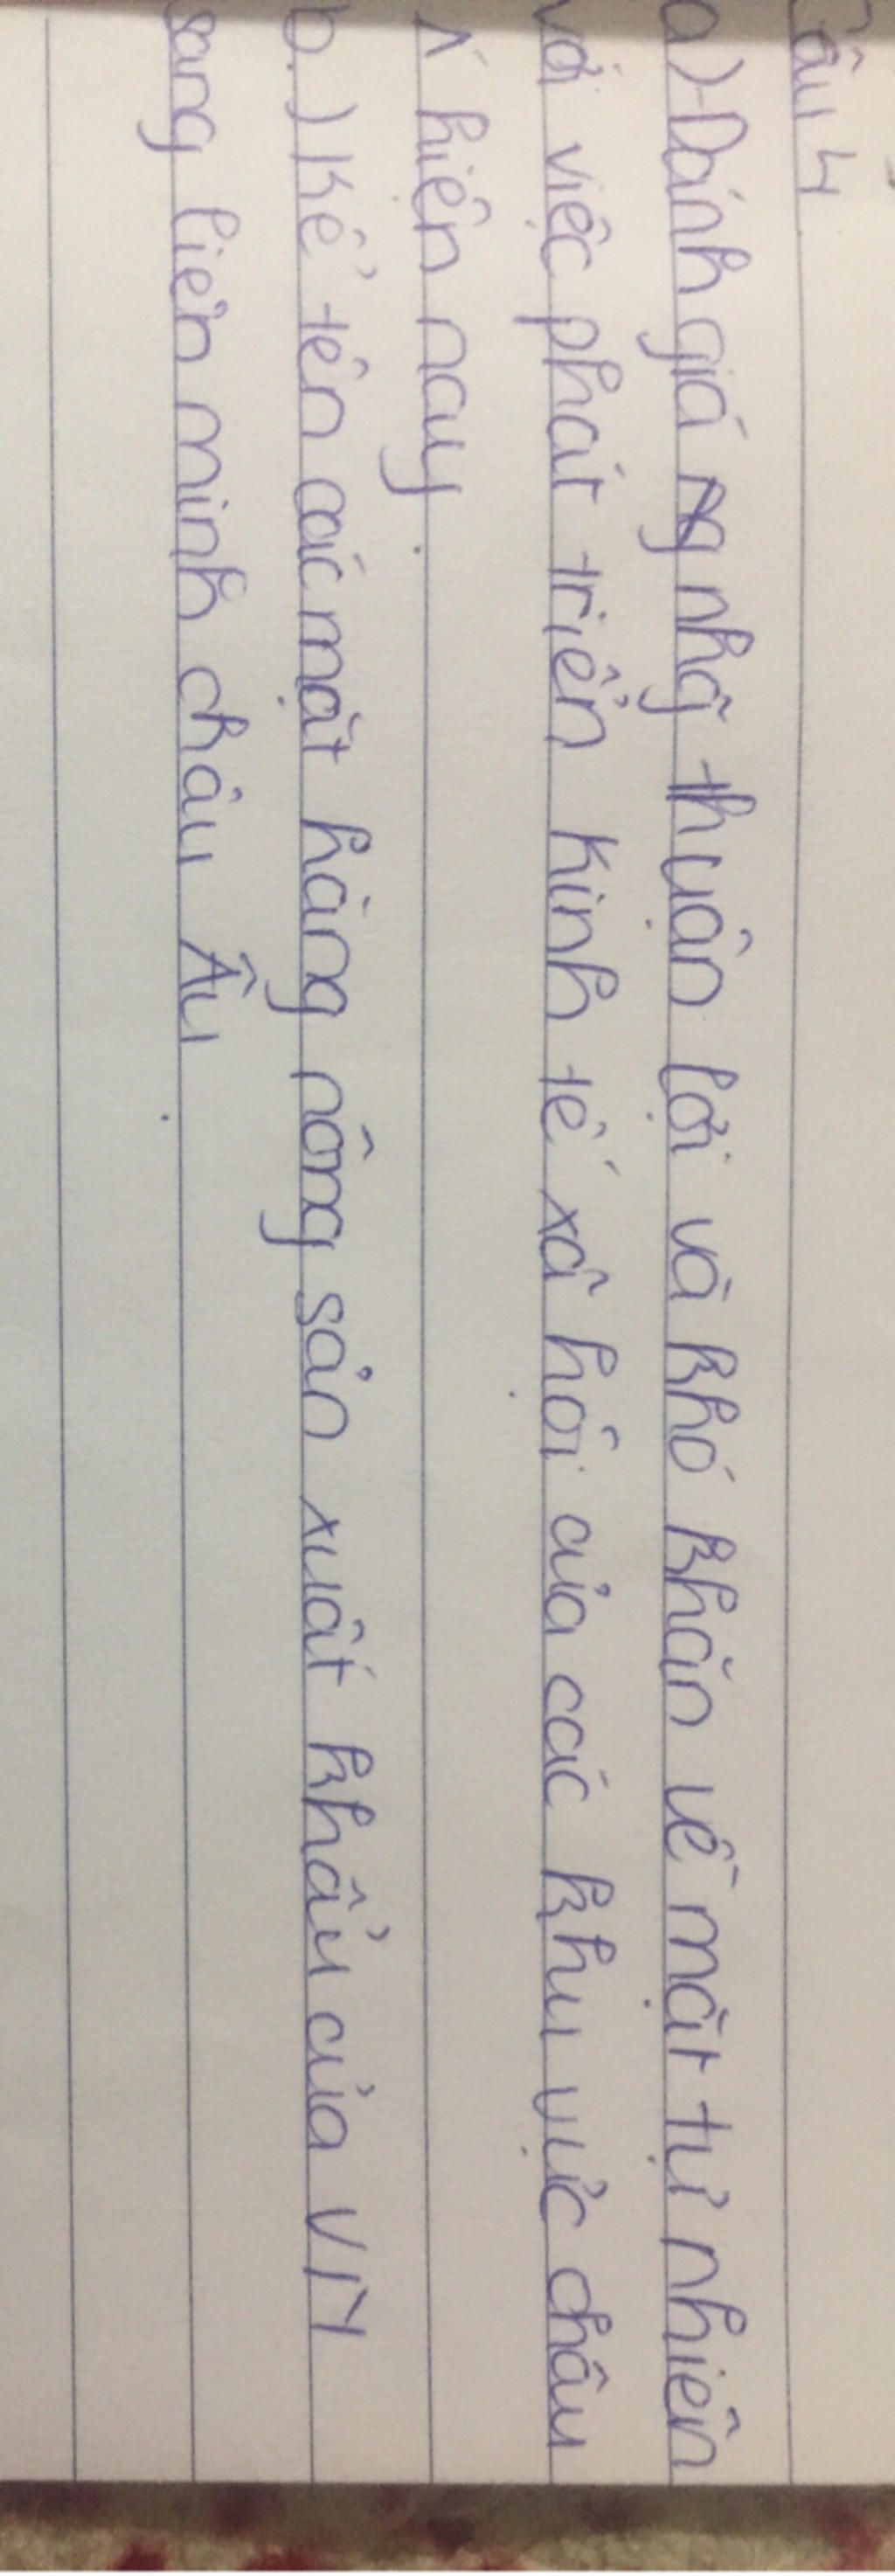 Câu 4
a) Đánh giá ng nhg̃ thuận lợi và khó khăn về mặt tự nhiên
với việc phát triển kinh tế xã hội của các khu vực châu
Á hiện nay.
b.) Kể tên các mặt hàng nông sản xuất khẩu của VN
sang liên minh châu Âu.